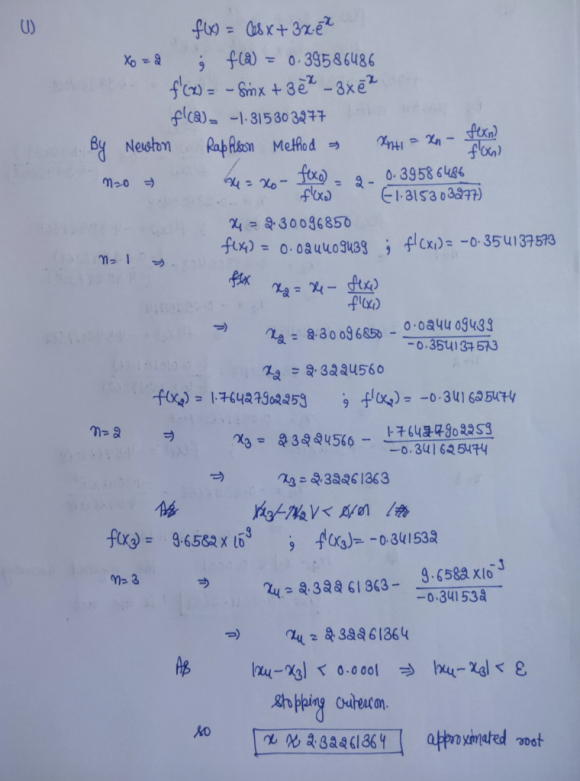 (1) f(x) = Cosx + 3x.e^-x
x₀ = 2 ; f(2) = 0.39586486
f'(x) = -Sinx + 3e^-x - 3xe^-x
f'(2) = -1.315303277
By Newton Raphson Method ⇒ xₙ₊₁ = xₙ - f(xₙ)/f'(xₙ)
n=0 ⇒ x₁ = x₀ - f(x₀)/f'(x₀) = 2 - 0.39586486/(-1.315303277)
x₁ = 2.30096850
f(x₁) = 0.024409439 ; f'(x₁) = -0.354137573
n=1 ⇒
x₂ = x₁ - f(x₁)/f'(x₁)
⇒ x₂ = 2.30096850 - 0.024409439/-0.354137573
x₂ = 2.3224560
f(x₂) = 1.76427902259 ; f'(x₂) = -0.341625474
n=2 ⇒ x₃ = 2.3224560 - 1.76427902259/-0.341625474
⇒ x₃ = 2.32261363
f(x₃) = 9.6582 x 10^-9 ; f'(x₃) = -0.341532
n=3 ⇒ x₄ = 2.32261363 - 9.6582 x 10^-9/-0.341532
⇒ x₄ = 2.32261364
As |x₄-x₃| < 0.0001 ⇒ |x₄-x₃| < ε
stopping criterion.
so x ≈ 2.32261364 approximated root